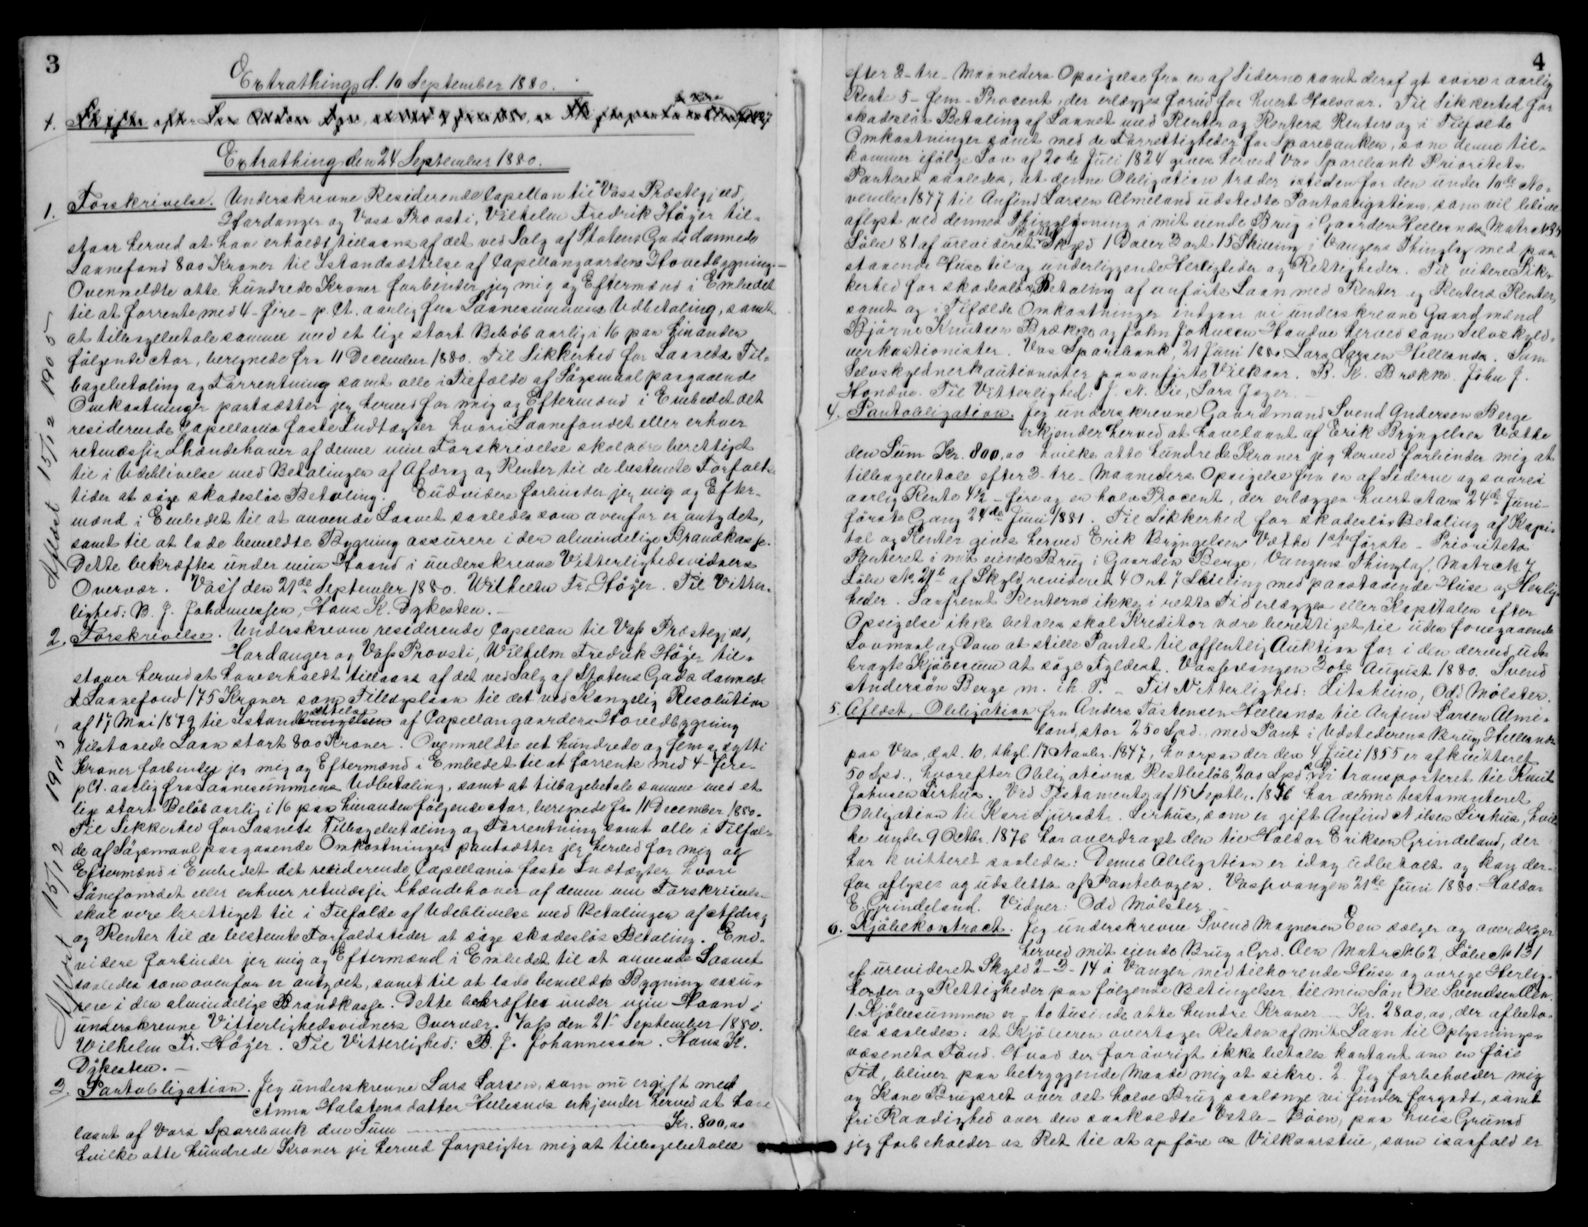 3
Extrathing d. 10 September 1880.
1.
Extrathing den 24 September 1880.
1. Forskrivelse. Underskrevne Residerende Capellan til Vass Præstegjeld,
Hardanger og Voss Provsti, Vilhelm Fredrik Høyer til-
staar herved at have erholdt tillaans af det ved Salg af Statens Gods dannede
Laanefond 800 Kroner til Istandsættelse af Capellangaardens Hovedbygning.-
Ovenmeldte otte hundrede Kroner forbinder jeg mig og Eftermænd i Embedet
til at forrente med 4- fire- p. Ct. aarlig fra Laanesummens Udbetaling, samt
at tilbagebetale samme med et lige stort Beløb aarlig i 16 paa hinanden
følgende Aar, beregnede fra 11 December 1880. Til Sikkerhed for Laanets Til-
bagebetaling og Forrentning samt alle i Tilfælde af Søgsmaal paagaaende
Omkostninger pantsætter jeg herved for mig og Eftermænd i Embedet det
residerende Capellanis faste Indtægter hvori Laanefondet eller enhver
retmæssig Ihændehaver af denne min Forskrivelse skal være berettiget
til i Udeblivelse med Betalingen af Afdrag og Renter til de bestemte Forfalds-
tider at søge skadesløs Betaling. Endvidere forbinder jeg mig og Efter-
mænd i Embedet til at anvende Laanet saaledes som ovenfor er antydet,
samt til at lade bemeldte Bygning assurere i den almindelige Brandkasse.
Dette bekræftes under min Haand i underskrevne Vitterlighedsvidners
Overvær. Voss den 21de September 1880. Wilhelm Fr. Høyer. Til Vitter-
lighed: B. J. Johannessen, Hans K. Dykesten.-
2. Forskrivelse. Underskrevne residerende Capellan til Vass Præstegjeld,
Hardanger og Vass Provsti, Wilhelm Fredrik Høyer til-
staaer herved at have erholdt tillaans af det ved Salg af Statens Gods dannede
Laanefond 175 Kroner som Tillægslaan til det ved Kongelig Resolution
af 17 Mai 1879 til Istandsættelse af Capellangaardens Hovedbygning
tilstaaede Laan stort 800 Kroner. Ovenmeldte et hundrede og fem og sytti
Kroner forbinder jeg mig og Eftermænd i Embedet til at forrente med 4- fire-
pCt. aarlig fra Laanesummens Udbetaling, samt at tilbagebetale samme med et
lige stort Beløb aarlig i 16 paa hinanden følgende Aar, beregnede fra 11 December 1880.
Til Sikkerhed for Laanets Tilbagebetaling og Forrentning samt alle i Tilfæl-
de af Søgsmaal paagaaende Omkostninger pantsætter jeg herved for mig og
Eftermænd i Embedet det residerende Capellanis faste Indtægter hvori
Lånefondet eller enhver retmæssig Ihændehaver af denne min Forskrivelse
skal være berettiget til i Tilfælde af Udeblivelse med Betalingen af Afdrag
og Renter til de bestemte Forfaldstider at søge skadesløs Betaling. End-
videre forbinder jeg mig og Eftermænd i Embedet til at anvende Laanet
saaledes som ovenfor er antydet, samt til at lade bemeldte Bygning assu-
rere i den almindelige Brandkasse. Dette bekræftes under min Haand i
underskrevne Vitterlighedsvidners Overvær. Vass den 21 September 1880.
Wilhelm Fr. Höyer. Til Vitterlighed: B. J. Johannessen. Hans K.
Dykesten.-
3. Pantobligation. Jeg underskrevne Lars Larsen, som nu er gift med
Anna Halstensdatter Hellesnæs erkjender herved at have
laant af Voss Sparebank den Sum Kr. 800,00
hvilke otte hundrede Kroner jeg herved forpligter mig at tilbagebetale
Aflöst 15/12 1905
Aflöst 15/12 1905
4
efter 3- tre- Maaneders Opsigelse fra en af Siderne samt deraf at svare i aarlig
Rente 5- fem- Procent, der erlægges forud for hvert Halvaar. Til Sikkerhed for
skadesløs Betaling af Laanet med Renter og Renters Renter og i Tilfælde
Omkostninger samt med de Forrettigheder for Sparebanken, som denne til-
kommer ifølge Lov af 20de Juli 1824 gives herved Vos Sparebank Prioritets
Panteret saaledes, at denne Obligation træder istedenfor den under 10de No-
vember 1877 til Anfind Larsen Almeland udstedte Pantobligation, som vil blive
aflyst ved dennes Thinglæsning i mit eiende Brug i Gaarden Hellesnæs Matr №
Løbe 81 af urevideret Skyld 1 Daler 3 ort 15 Skilling i Vangens Thinglag med paa-
staaende Huse til og underliggende Herligheder og Rettigheder. Til videre Sik-
kerhed for skadesløs Betaling af anførte Laan med Renter og Renters Renter,
samt og i Tilfælde Omkostninger indgaar vi underskrevne Gaardmænd
Bjarne Knutsen Brække og John Johnsen Hondve herved som Selvskyld-
nerkautionister. Vos Sparebank, 21 Juni 1880 Lars Larsen Hellesnæs. Som
Selvskyldnerkautionister paa anførte Vilkaar. B. K. Brække. John J.
Hondve. Til Vitterlighed: J. N. Lie, Lars Jøger.
4. Pantobligation. Jeg underskrevne Gaardmand Svend Andersen Berge
erkjender herved at have laant af Erik Bryngelsen Væthe
den Sum Kr. 800,00 hvilke otte hundrede Kroner jeg herved forbinder mig at
tilbagebetale efter 3- tre- Maaneders Opsigelse fra en af Siderne og svarer
aarlig Rente 4½ - fire og en halv Procent, der erlægges hvert Aars 24de Juni-
første Gang 24de Juni 1881. Til Sikkerhed for skadesløs Betaling af Kapi-
tal og Renter gives herved Erik Bryngelsen Væthe 1ste første- Prioritets
Panteret i mit eiende Brug i Gaarden Berge, Vangens Thinglag, Matr № 7
Løbe № 21 af Skyld revideret 4 Ort 7 Skilling med paastaaende Huse og Herlig-
heder. Saafremt Renterne ikke i rette Tid erlægges eller Kapitalen efter
Opsigelse ikke betales skal Kreditor være berettiget til uden foregaaende
Lovmaal og Dom at stille Pantet til offentlig Auktion for i den derved ud-
bragte Kjøbesum at søge Fyldest. Vossevangen 3die August 1880. Svend
Andersøn Berge m. i. P. - Til Vitterlighed: Litshim, Odd Mølster.
5. Aflæst, Obligation fra Anders Tostensen Hellesnæs til Anfind Larsen Alme-
land, stor 250 Spd. med Pant i Udstederens Brug Hellesnæs
paa Vos, dat. 10, thgl. 17 Novbr. 1847, hvorpaa der den 4 Juli 1855 er afkvitteret
50 Spd., hvorefter Obligations Restbeløb 200 Spd er transporteret til Knut
Johnsen Lirhus. Ved Testamente af 15 Septbr. 1876 har denne testamenteret
Obligation til Kari Sjursdtr. Lirhus, som er gift Anfind Nilsen Lirhus, hvil-
ke under 9 Octbr. 1876 har overdraget den til Haldor Eriksen Grindeland, der
har kvitteret saaledes: Denne Obligation er idag indbetalt og kan der-
for aflyses og udslettes af Pantebogen. Vossevangen 21de Juni 1880. Haldor
E. Grindeland. Vidner: Odd Mølster.
6. Kjøbekontract. Jeg underskrevne Svend Magnesen Øen sælger og overdrager
herved mit eiende Brug i Grd. Øen Matr № 62 Løbe № 131
af urevideret Skyld 2-3-14 i Vangen med tilhørende Huse og øvrige Herlig-
heder og Rettigheder paa følgende Betingelser til min Søn Ole Svendsen Øen.
1. Kjøbesummen er - to tusinde otte hundre Kroner - Kr. 2800,00, der afbeta-
les saaledes: at Kjøberen overtager Resten af mit Laan til Oplysnings-
væsenets Fond. Hvad der forøvrigt ikke betales kontant om en føie
Tid, bliver paa betryggende Maade mig at sikre. 2. Jeg forbeholder mig
og Kone Brugsret over det halve Brug saalænge vi finder forgodt, samt
fri Raadighed over den saakaldte Vetle- Bøen, paa hvis Grund
jeg forbeholder os Ret til at opføre os Vilkaarstue, som isaafald er